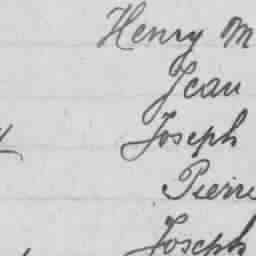 Henry M
Jean
Joseph
Pierre
Joseph